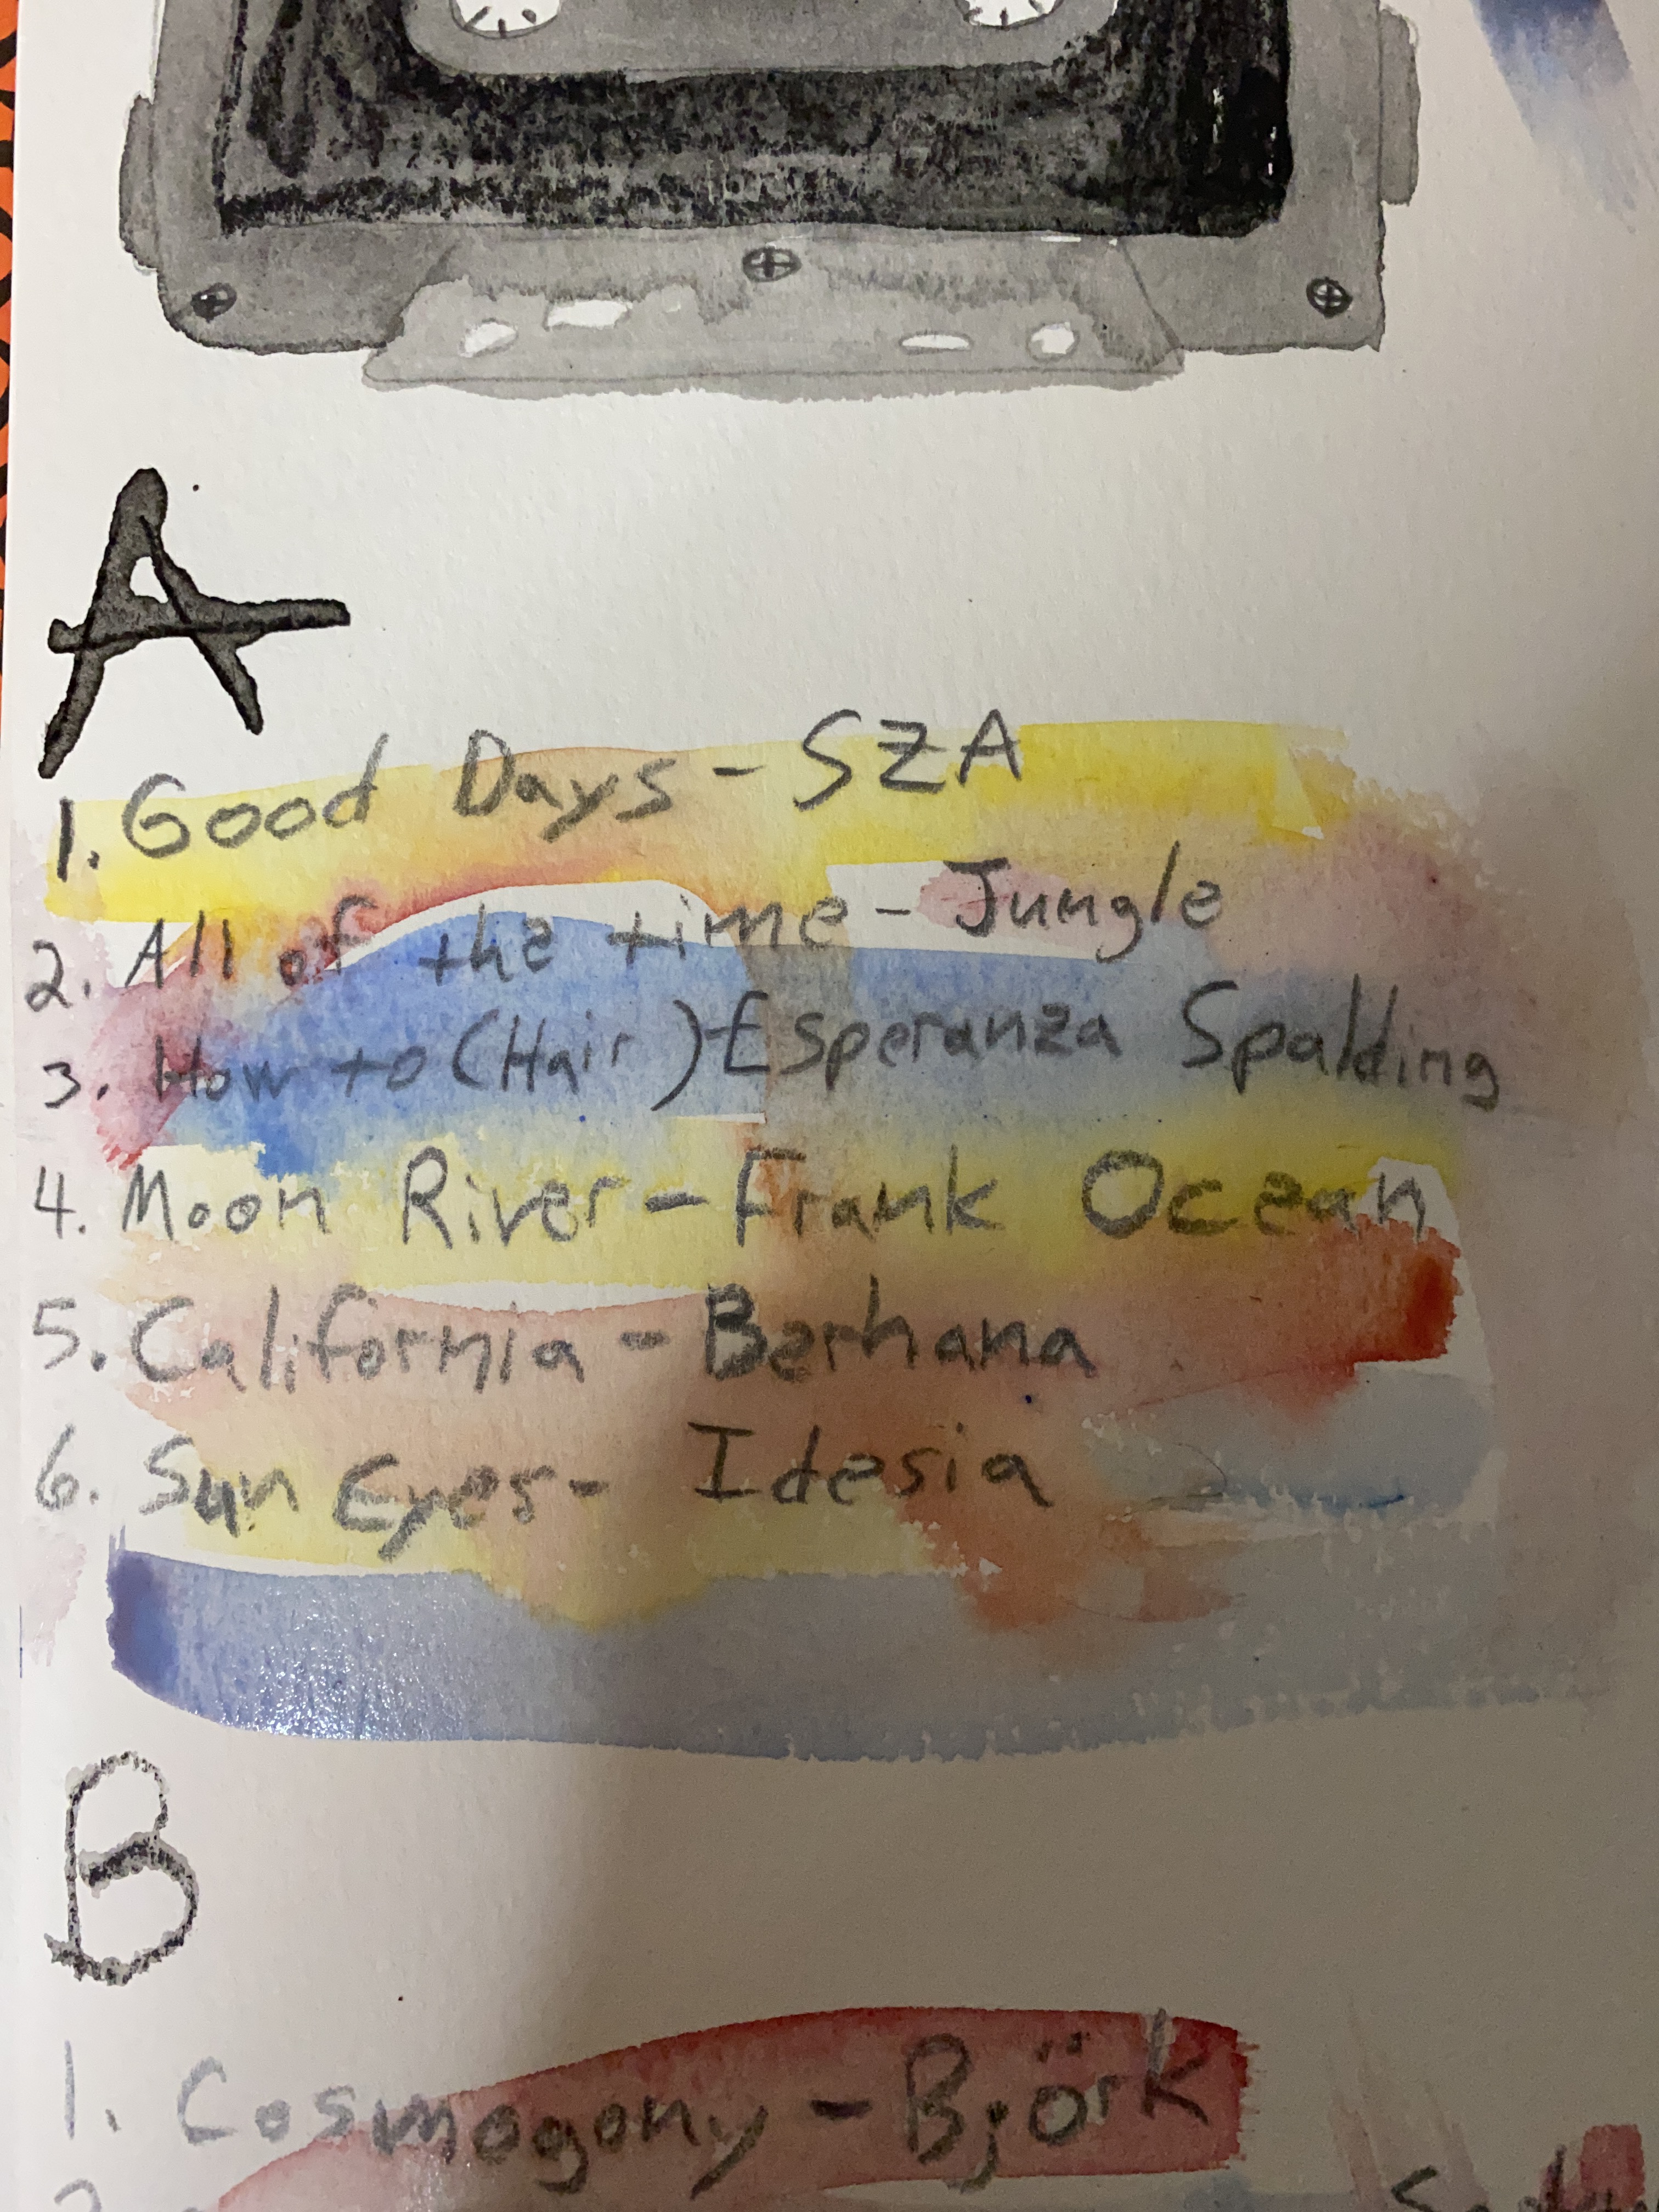 A
1. Good Days - SZA
2. All of the time - Jungle
3. How to (Hair) - Esperanza Spalding
4. Moon River - Frank Ocean
5. California - Berhana
6. Sun Eyes - Idesia
B
1. Cosmogony - Björk